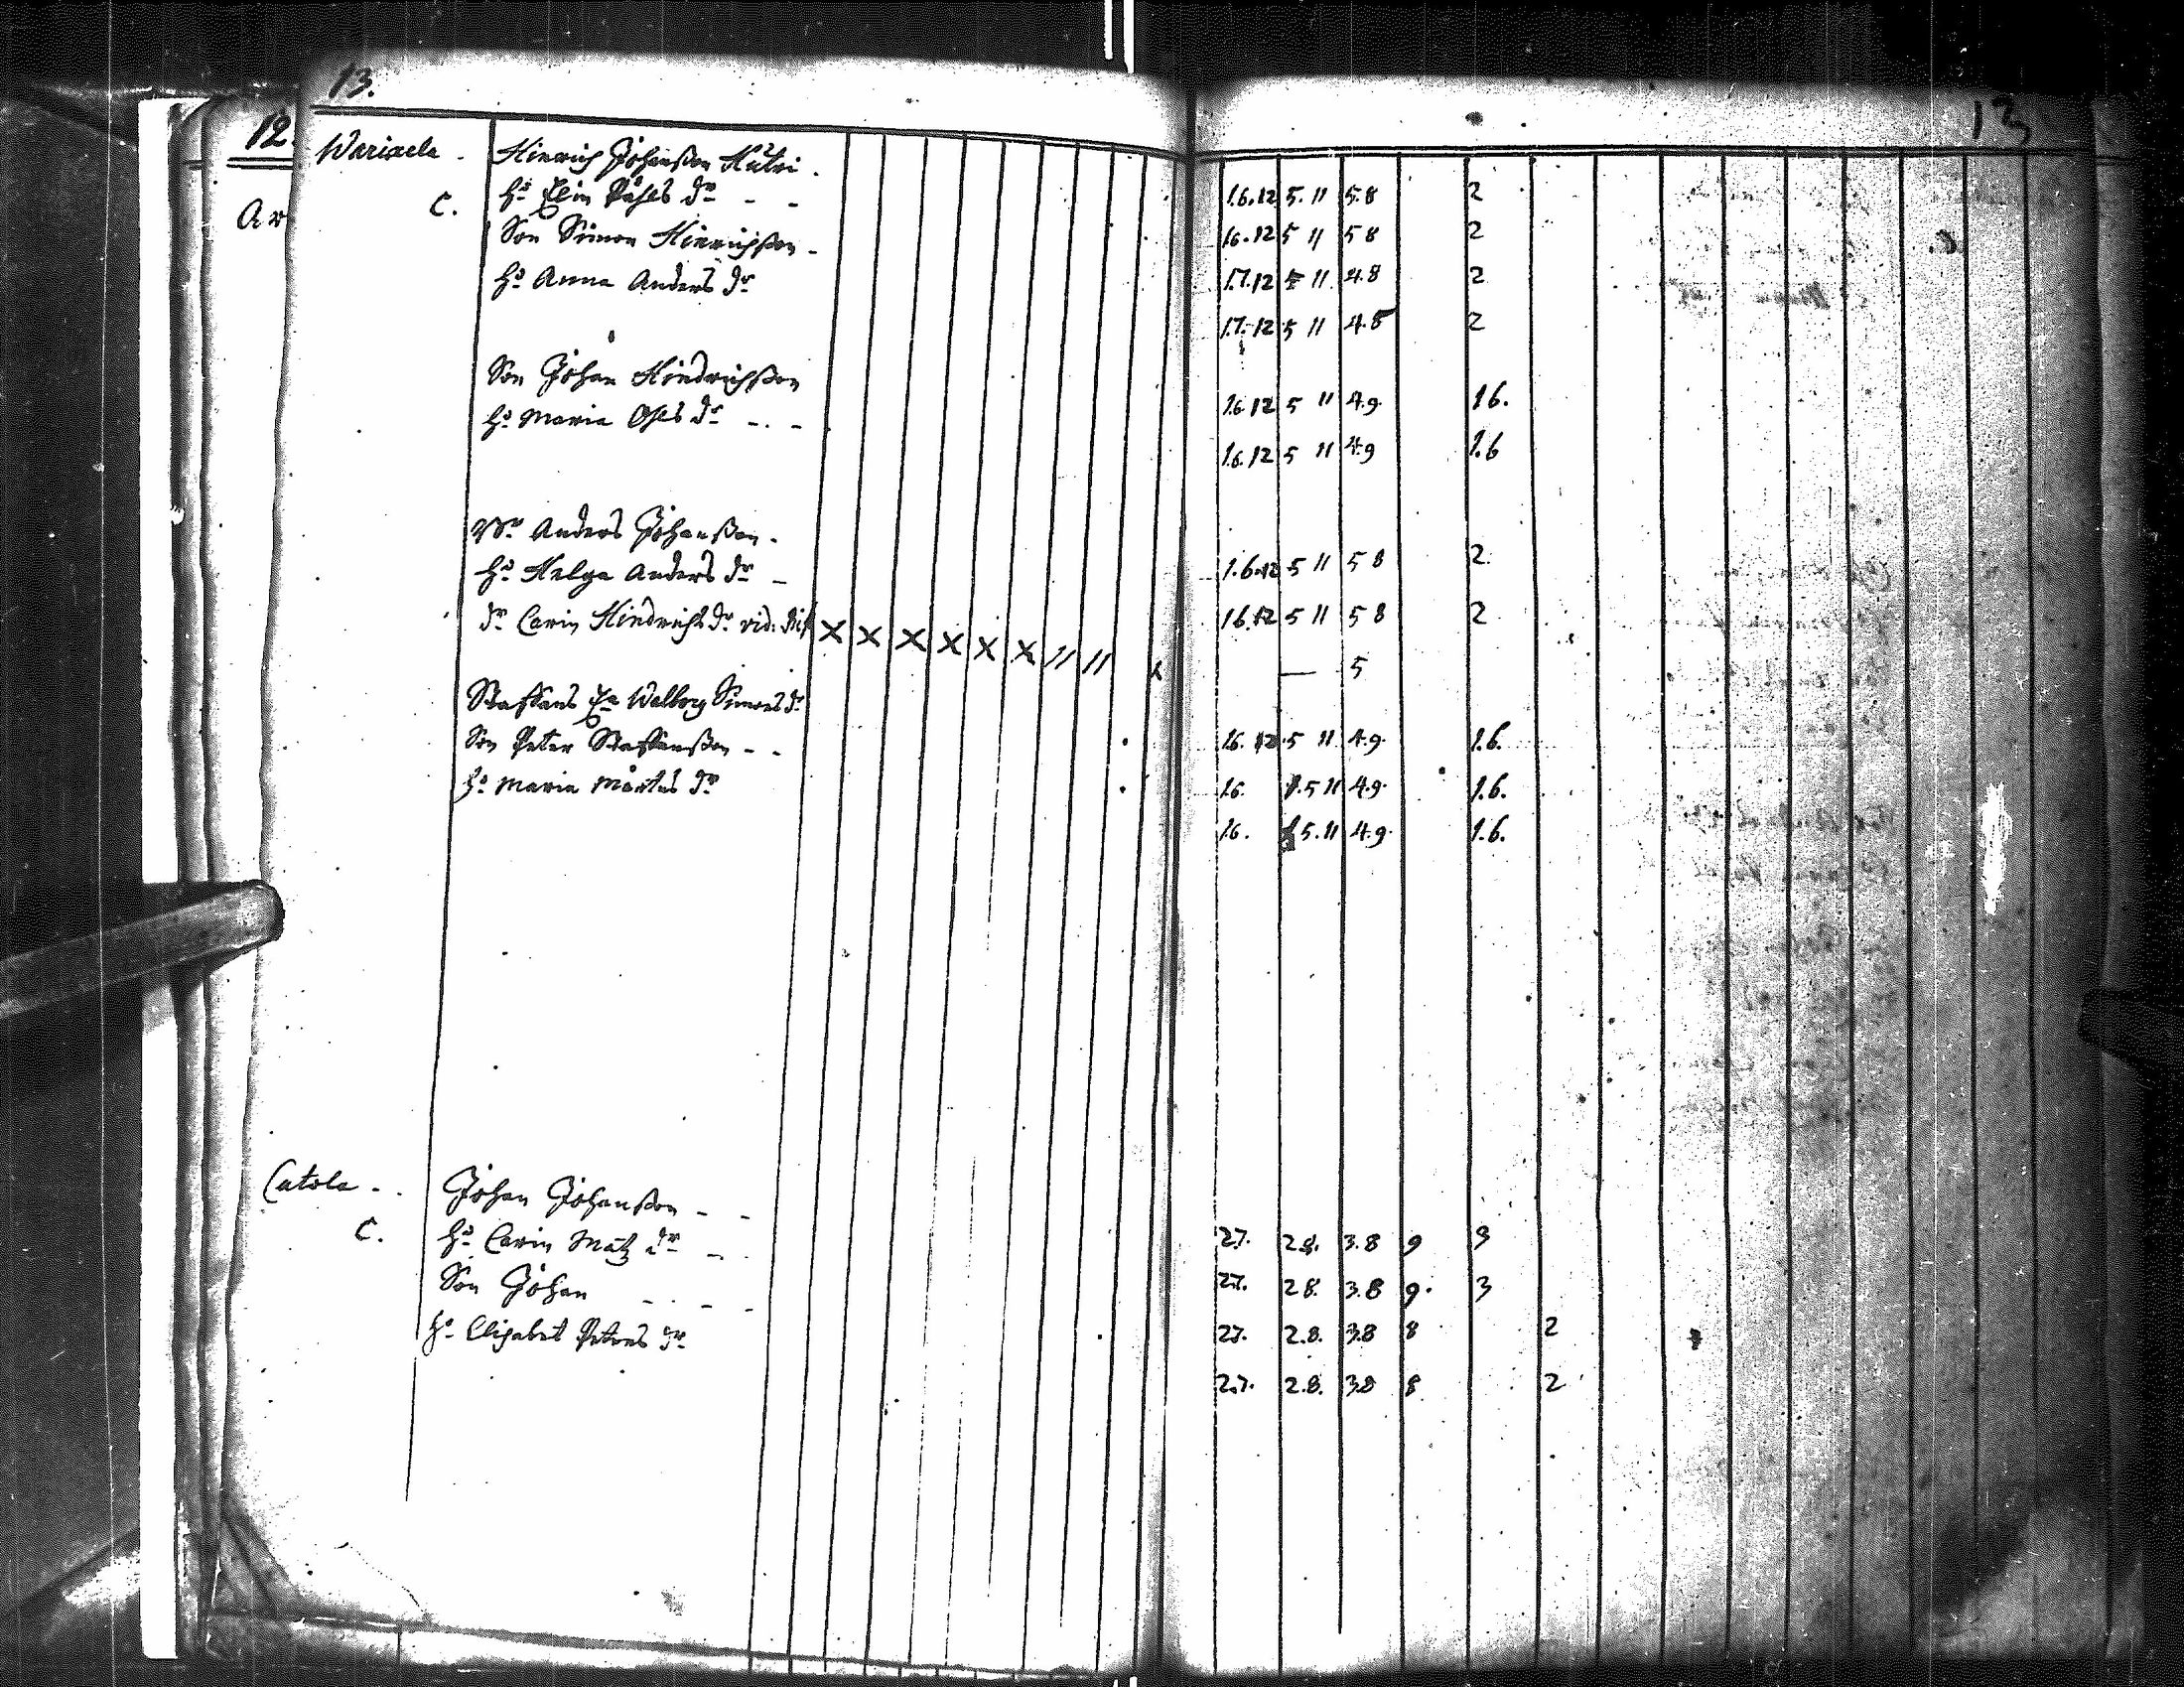 13.
12
Ar
Wariaela. Hinrich Johanßon Kutri.
C. Hu Elin Påhls dr - -
Son Simon Hinrichßon -
Hu Anna Anders dr
Son Johan Hindrichßon
Hu Maria Ohls dr - . -
Anders Johanßon.
Hu Helga Anders dr -
dr Carin Hindrichs dr vid: X X X X X X 11 11 x
Staffans Ea Walborg Simons dr
Son Peter Staffanßon - -
Hu Maria Mårtens dr
Catola - . Johan Johanßon - -
C. Hu Carin Matz dr - .
Son Johan - . - -
Hu Elisabet Peters dr
13
1.6.12 5.11 5.8 2
16.12 5 11 5 8 2
1.7.12 5 11. 4.8 2
1.7.12 5 11 4.8 2
16.12 5 11 4.9. 16.
16.12 5 11 4.9 1.6
1.6.12 5 11 5 8 2.
16.12 5 11 5 8 2
— 5
16. 12.5 11 4.9. 1.6.
16. 5 11 4.9. 1.6.
16. 5.11 4.9. 1.6.
27. 2.8. 3.8 9 3
27. 2 8. 3.8 9. 3
27. 2.8. 3.8 8 2
2.7. 2.8. 3.8 8 2